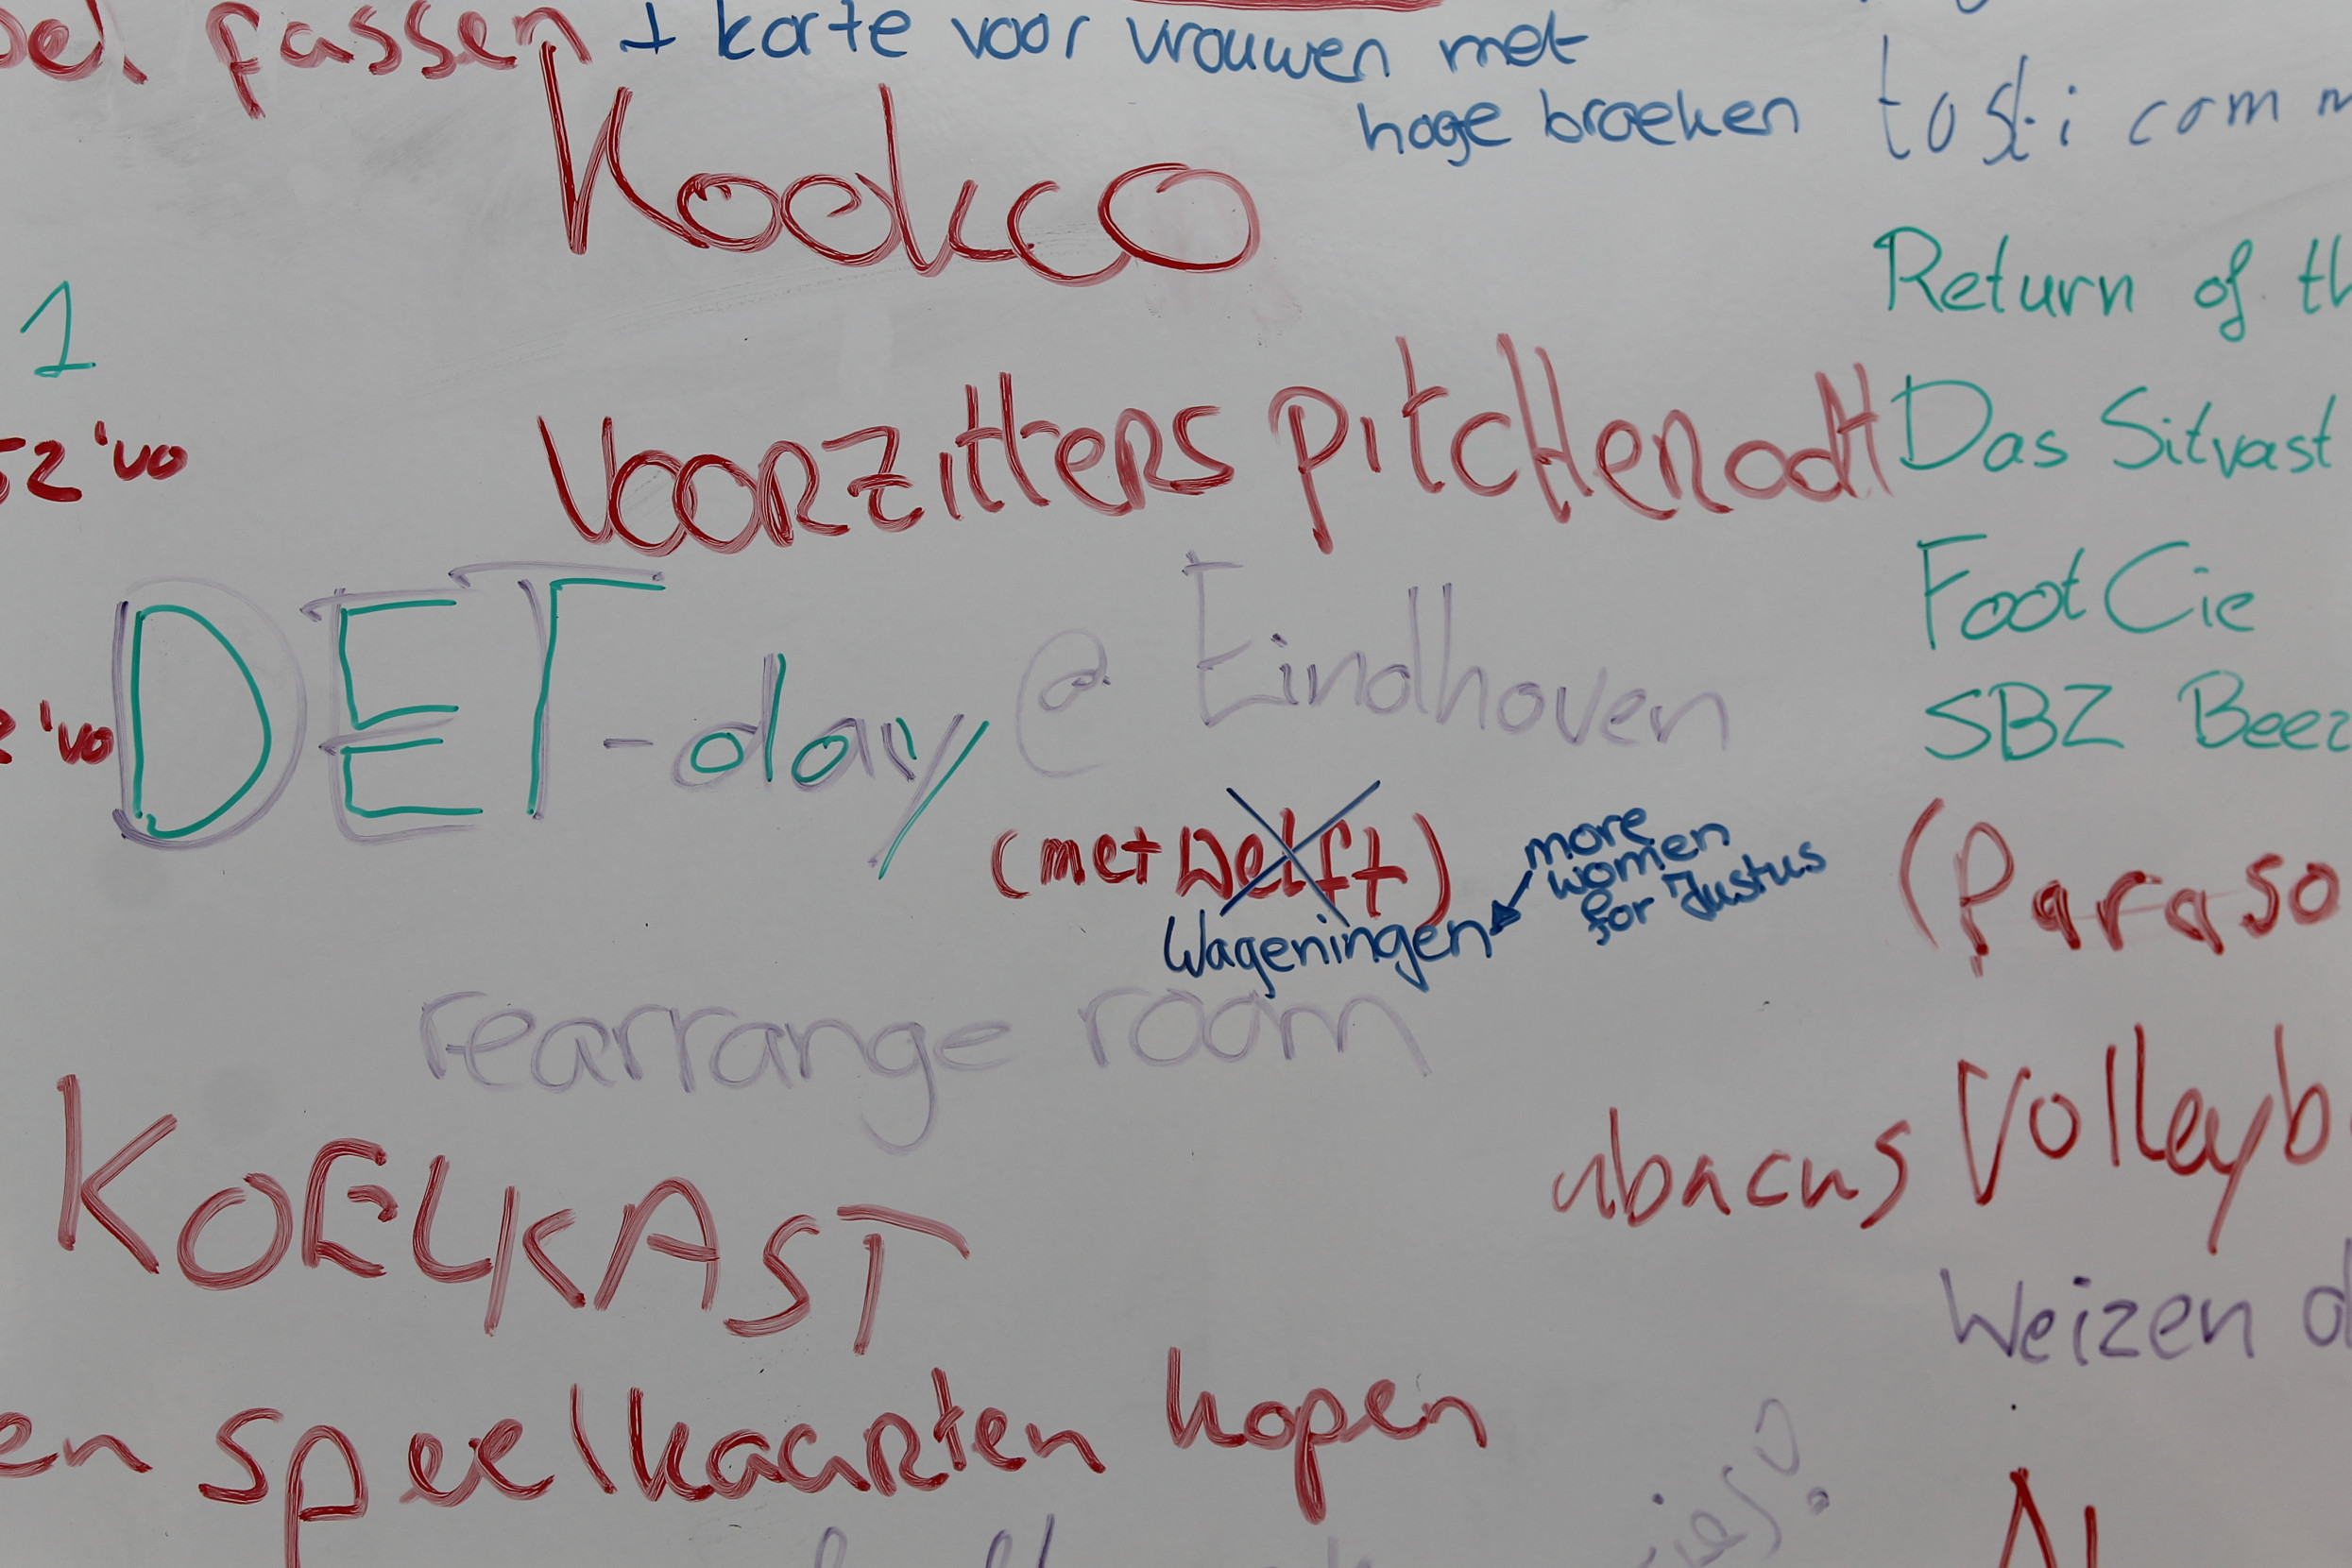 fassen + korte voor vrouwen met
hoge broeken
tosti comm
Kookco
Return of th
1
Voorzitters pitchenodt
Das Sitvast
'vo
FootCie
DET-day @ Eindhoven
SBZ Beez
'vo
(met Delft)
Wageningen
more
women
for Justus
(Paraso
rearrange room
abacus Volleyb
KOELKAST
Weizen d
en speelkaarten kopen